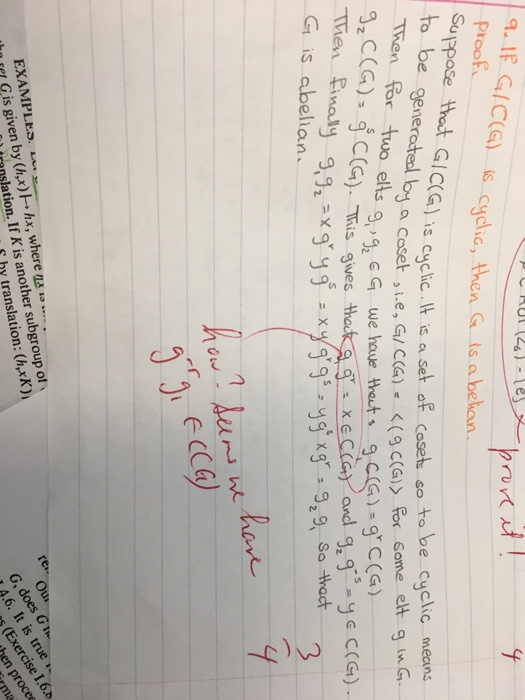 prove it! 4
9. If G/C(G) is cyclic, then G is abelian.
proof.
Suppose that G/C(G) is cyclic. It is a set of cosets so to be cyclic means
to be generated by a coset, i.e., G/C(G) = <(g C(G)> for some elt g in G.
Then for two elts g₁, g₂ ∈ G we have that g₁C(G) = gʳC(G)
g₂C(G) = gˢC(G). This gives that g₁g⁻ʳ = x ∈ C(G) and g₂g⁻ˢ = y ∈ C(G).
Then finally g₁g₂ = xgʳygˢ = xygʳgˢ = ygˢxgʳ = g₂g₁ so that
G is abelian.
3
4
how? Seems we have
g⁻ʳg₁ ∈ C(G)
EXAMPLES.
the set G is given by (h,x) ↦ hx, where
translation. If K is another subgroup of
by translation: (h,xK)
G, does
1.4.6. It is true
(Exercise I.6.
then procee